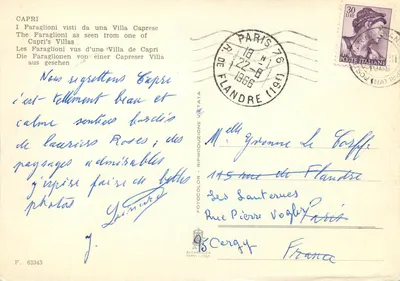 CAPRI
I Faraglioni visti da una Villa Caprese
The Faraglioni as seen from one of
Capri's Villas
Les Faraglioni vus d'una Ville de Capri
Die Faraglionen von einer Capreser Villa
aus gesehen
Nous regrettons Capri
c'est tellement beau et
calme sentiers bordés
de lauriers Roses, des
paysages admirables
j'espère faire de belles
photos
J.
F. 63243
FOTOCOLOR - RIPRODUZIONE VIETATA
PARIS 76
18 H
22-8
1966
R. DE FLANDRE (19E)
30
POSTE ITALIANE
Melle Yvonne Le Corff
149 rue de Flandre
Les Santernes
Rue Pierre Vogler Paris
95 Cergy
France